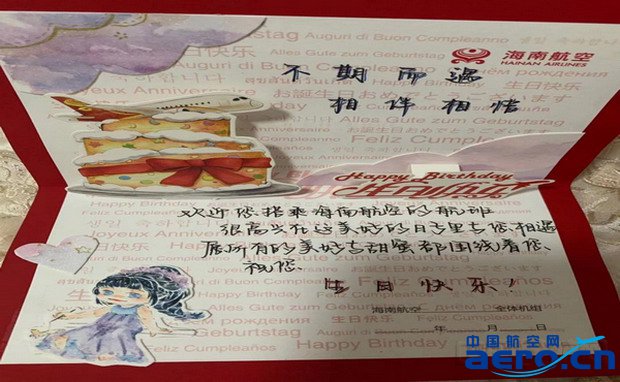 海南航空
HAINAN AIRLINES
不期而遇
相伴相惜
Happy Birthday
生日快乐
欢迎您搭乘海南航空的航班
很高兴在这美好的日子里与您相遇
愿所有的美好与甜蜜都围绕着您、
祝您、
生日快乐!
海南航空 全体机组
年 月 日
中国航空网
aero.cn
Auguri di Buon Compleanno
Alles Gute zum Geburtstag
Joyeux Anniversaire
お誕生日おめでとうございます
Feliz Cumpleaños
Happy Birthday
生日快乐